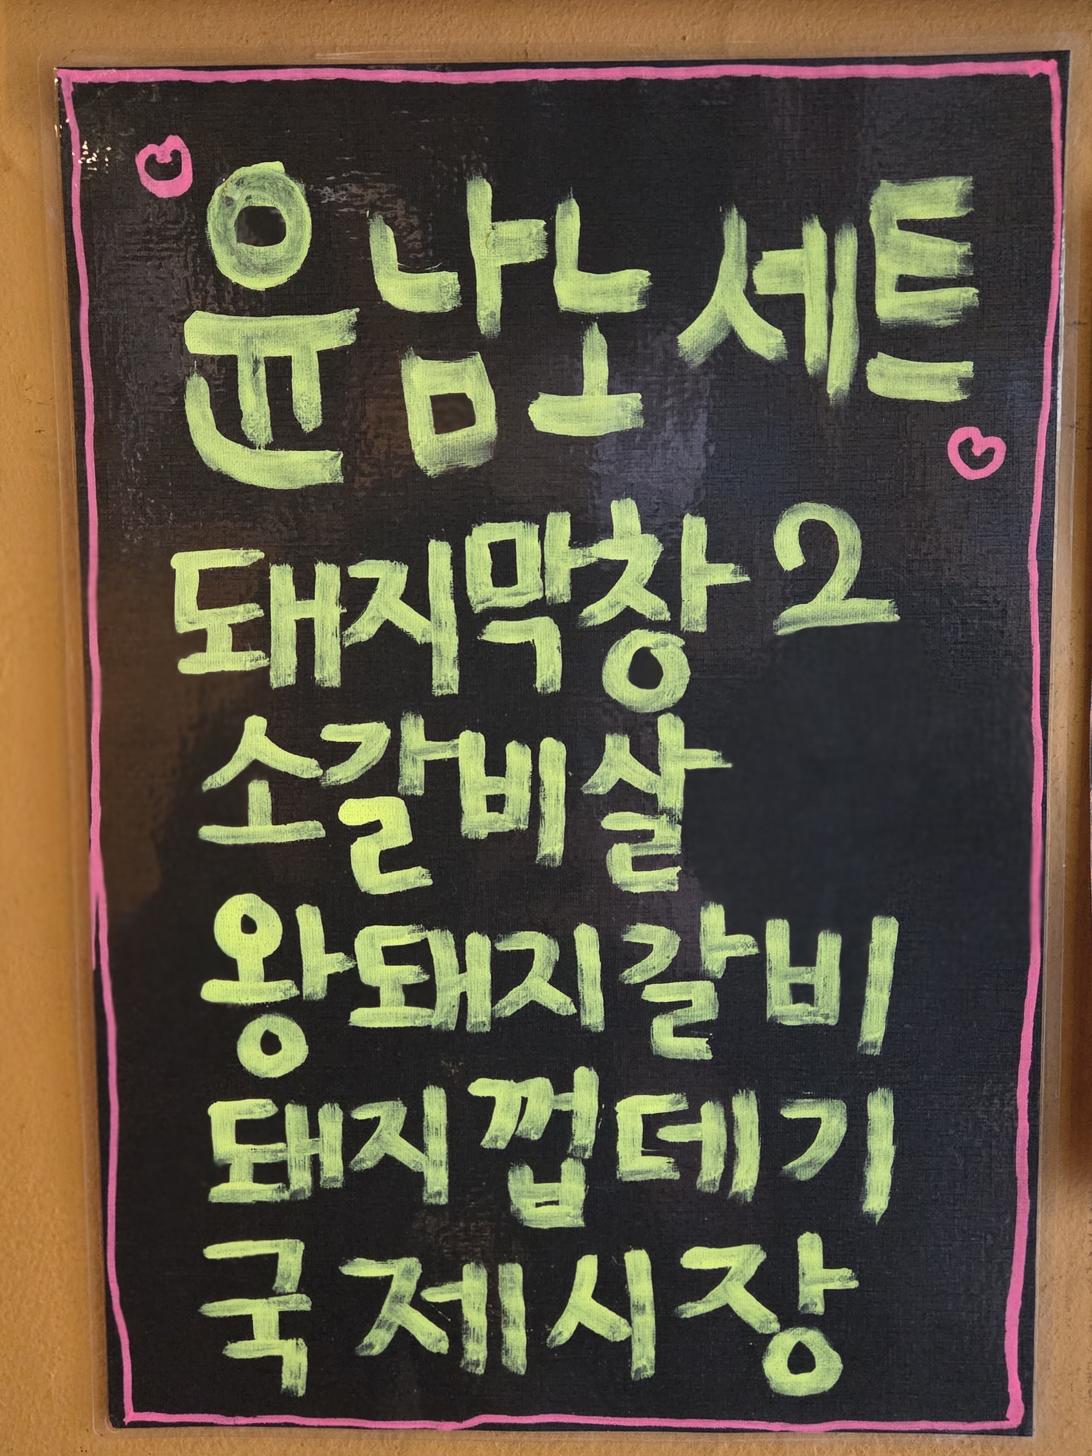 윤남노 세트
돼지막창 2
소갈비살
왕돼지갈비
돼지껍데기
국제시장